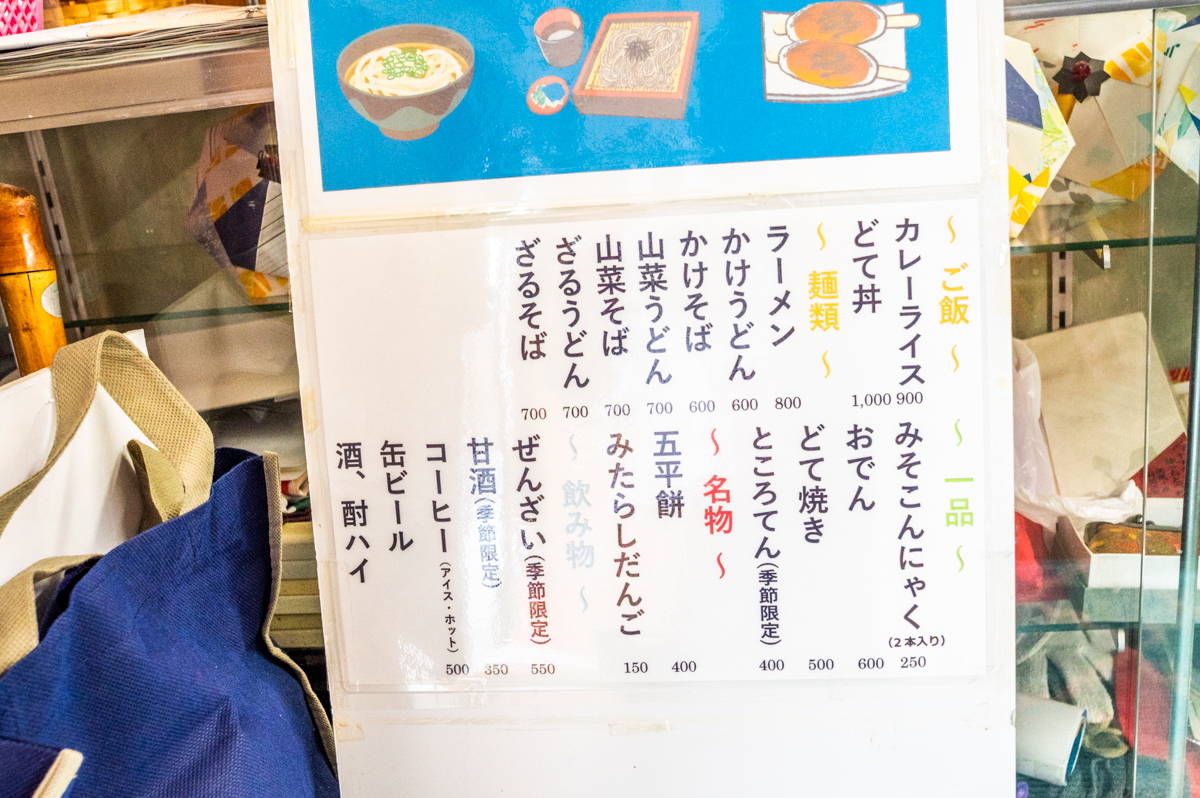 ~ご飯~
カレーライス 900
どて丼 1,000
~麺類~
ラーメン 800
かけうどん 600
かけそば 600
山菜うどん 700
山菜そば 700
ざるうどん 700
ざるそば 700
~一品~
みそこんにゃく(2本入り) 250
おでん 600
どて焼き 500
ところてん(季節限定) 400
~名物~
五平餅 400
みたらしだんご 150
~飲み物~
ぜんざい(季節限定) 550
甘酒(季節限定) 350
コーヒー(アイス・ホット) 500
缶ビール
酒、酎ハイ